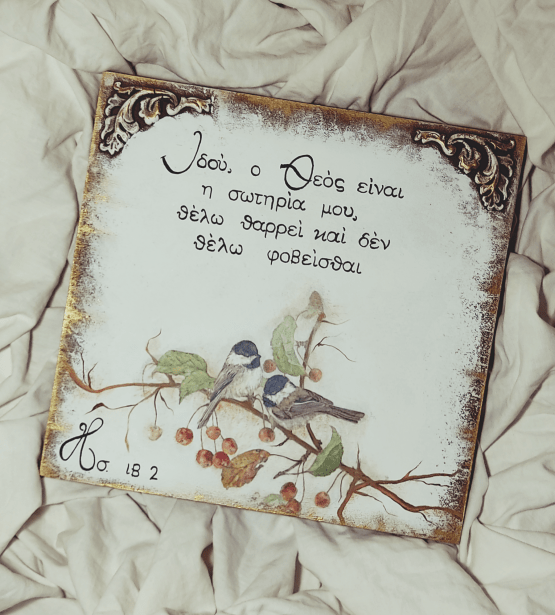 Ιδού, ο Θεὸς εἰναι
η σωτηρία μου,
θὲλω θαρρεὶ καὶ δὲν
θὲλω φοβεὶσθαι
Ησ. ιβ 2